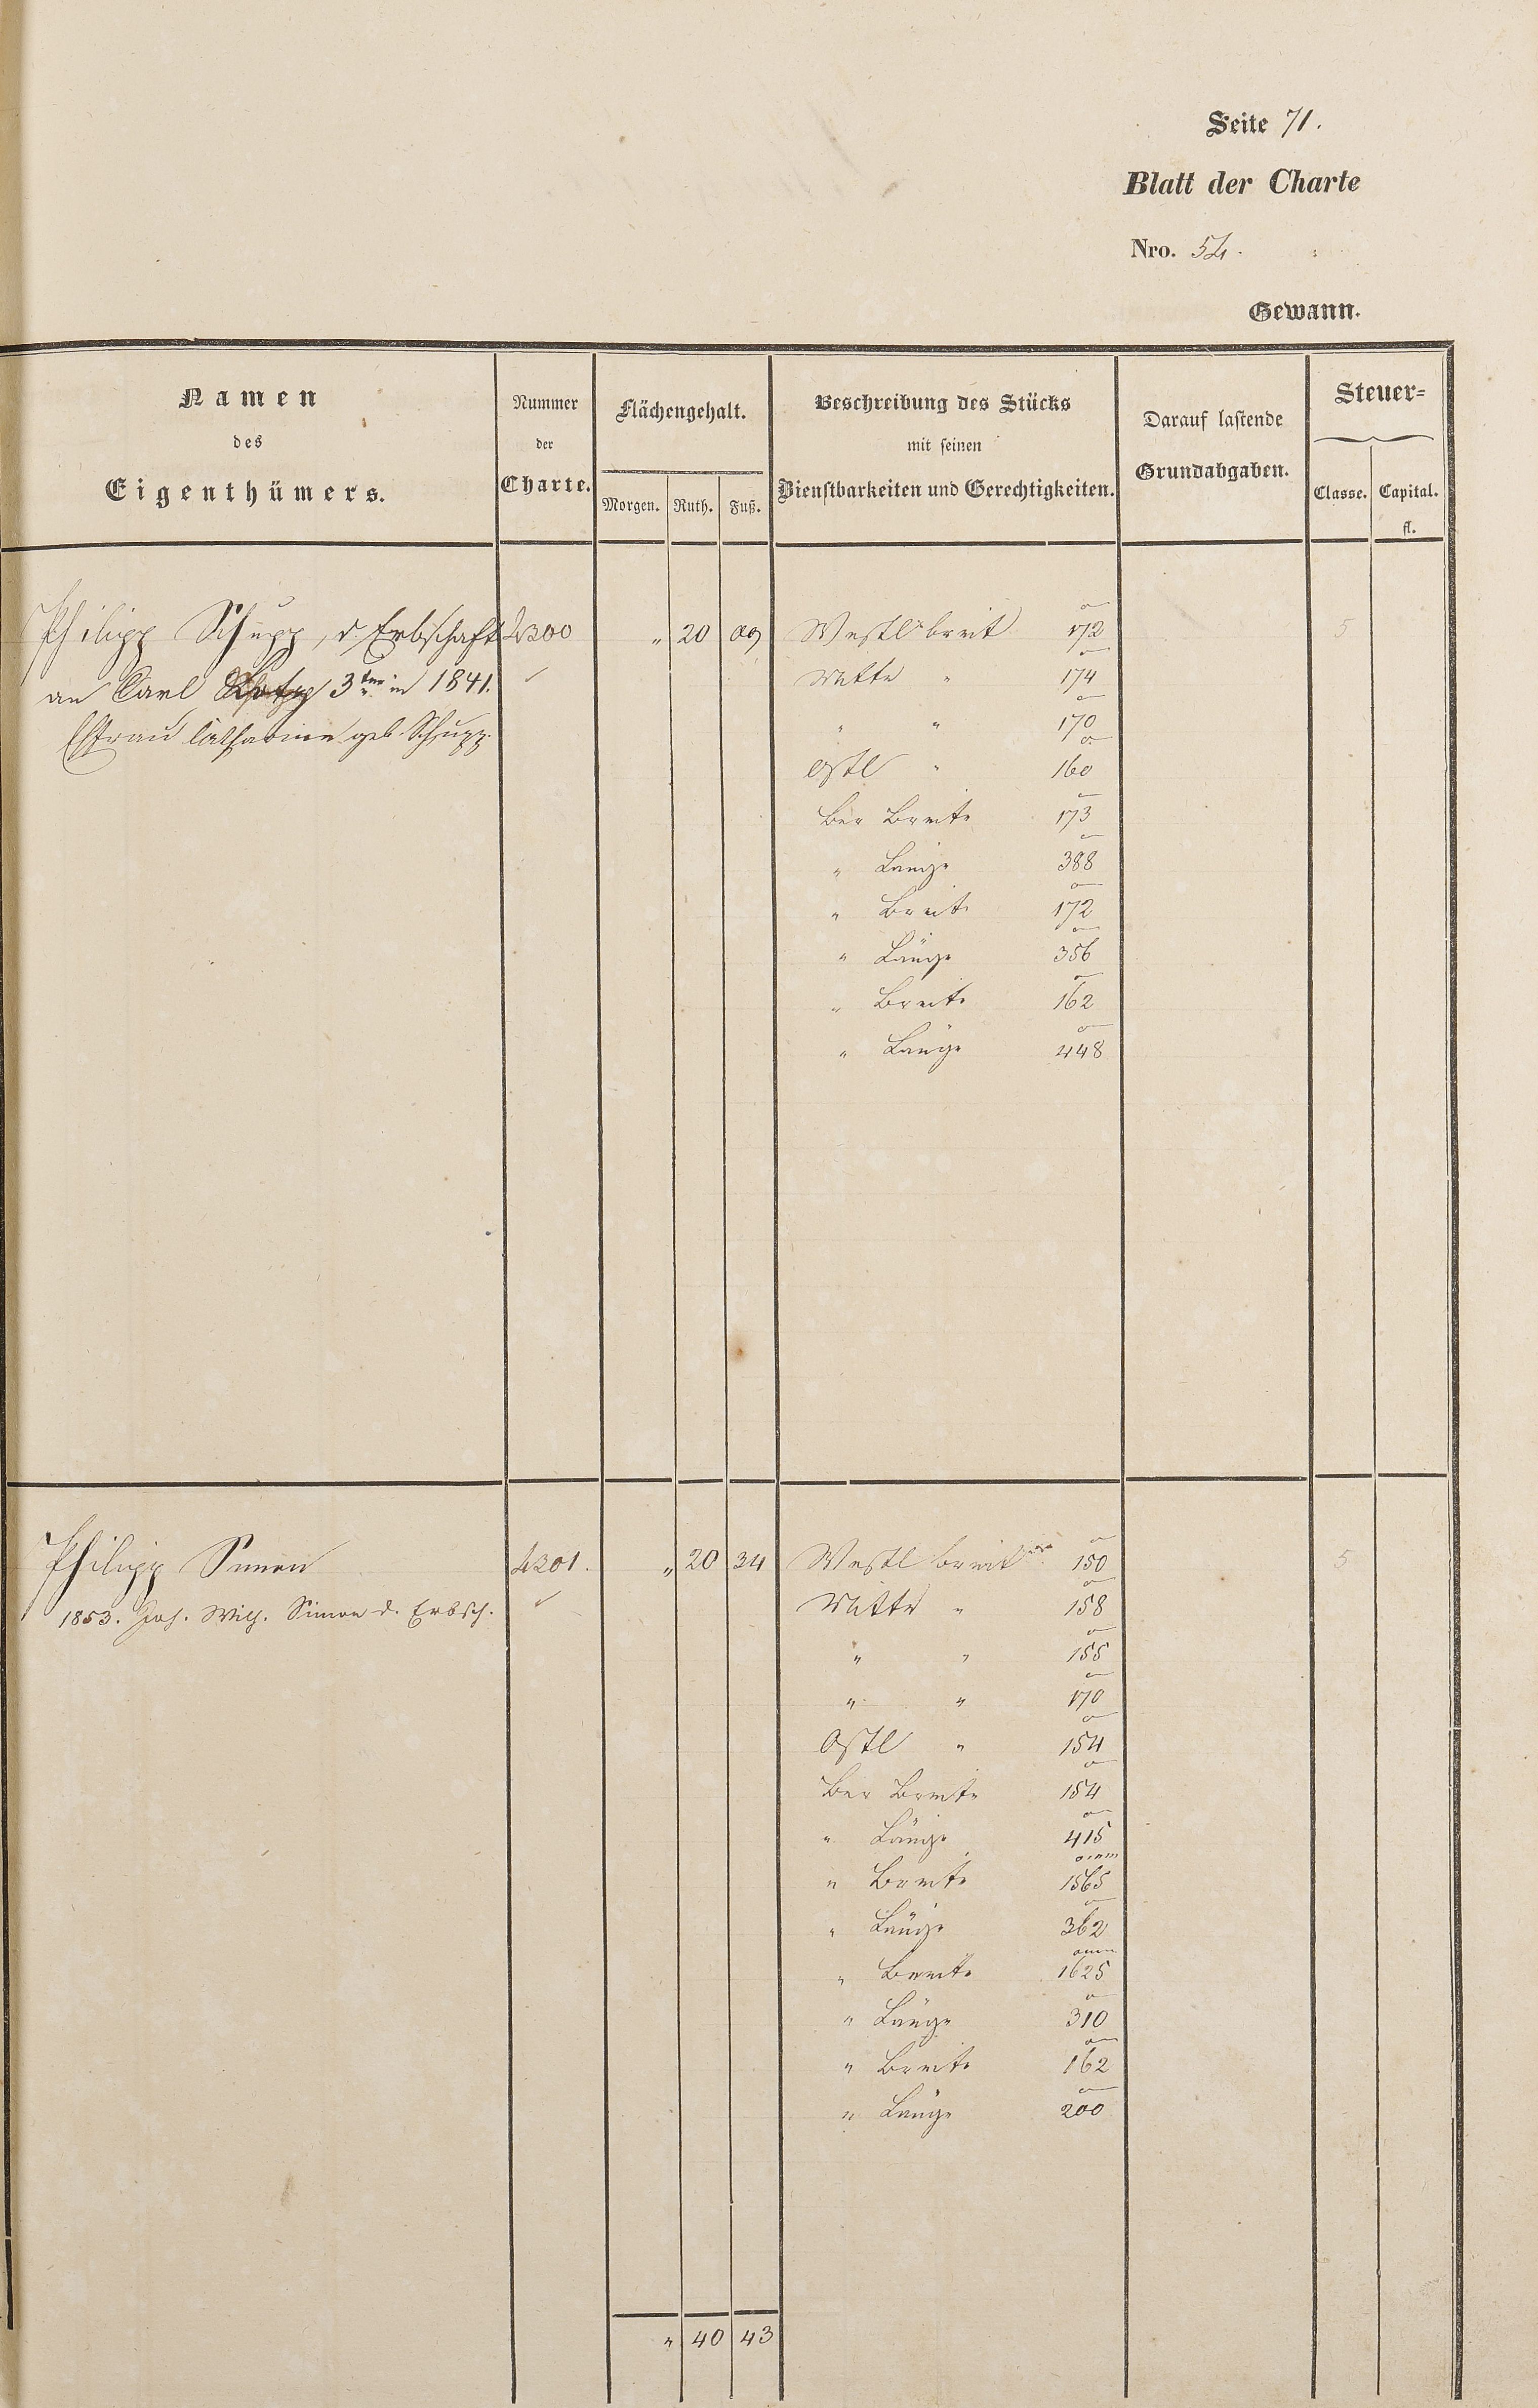 Seite 71.
Blatt der Charte
Nro. 54.
Gewann.
Namen
des
Eigenthümers.
Nummer
der
Charte.
Flächengehalt.
Morgen. Ruth. Fuß.
Beschreibung des Stücks
mit seinen
Dienstbarkeiten und Gerechtigkeiten.
Darauf lastende
Grundabgaben.
Steuer-
Classe. Capital.
fl.
Philipp Schupp, d. Erbschaft 4300 " 20 09 Westl breit 172 5
an Carl 3ter in 1841. Mitte " 174
Efrau Catharine geb. Schupp. " " 170
Ostl " 160
Ber Breite 173
" Länge 388
" Breite 172
" Länge 356
" Breite 162
" Länge 448
Philipp Simon 4301. " 20 34 Westl breit 150 5
1853. Joh. Wilh. Simon d. Erbsch. Mitte " 158
" " 155
" " 170
Ostl " 154
Ber Breite 154
" Länge 415
" Breite 1565
" Länge 362
" Breite 1625
" Länge 310
" Breite 162
" Länge 200
" 40 43